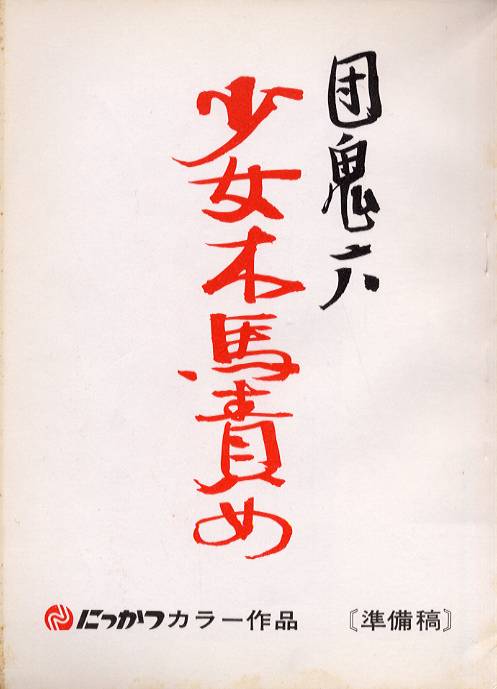 団鬼六
少女木馬責め
にっかつカラー作品 〔準備稿〕